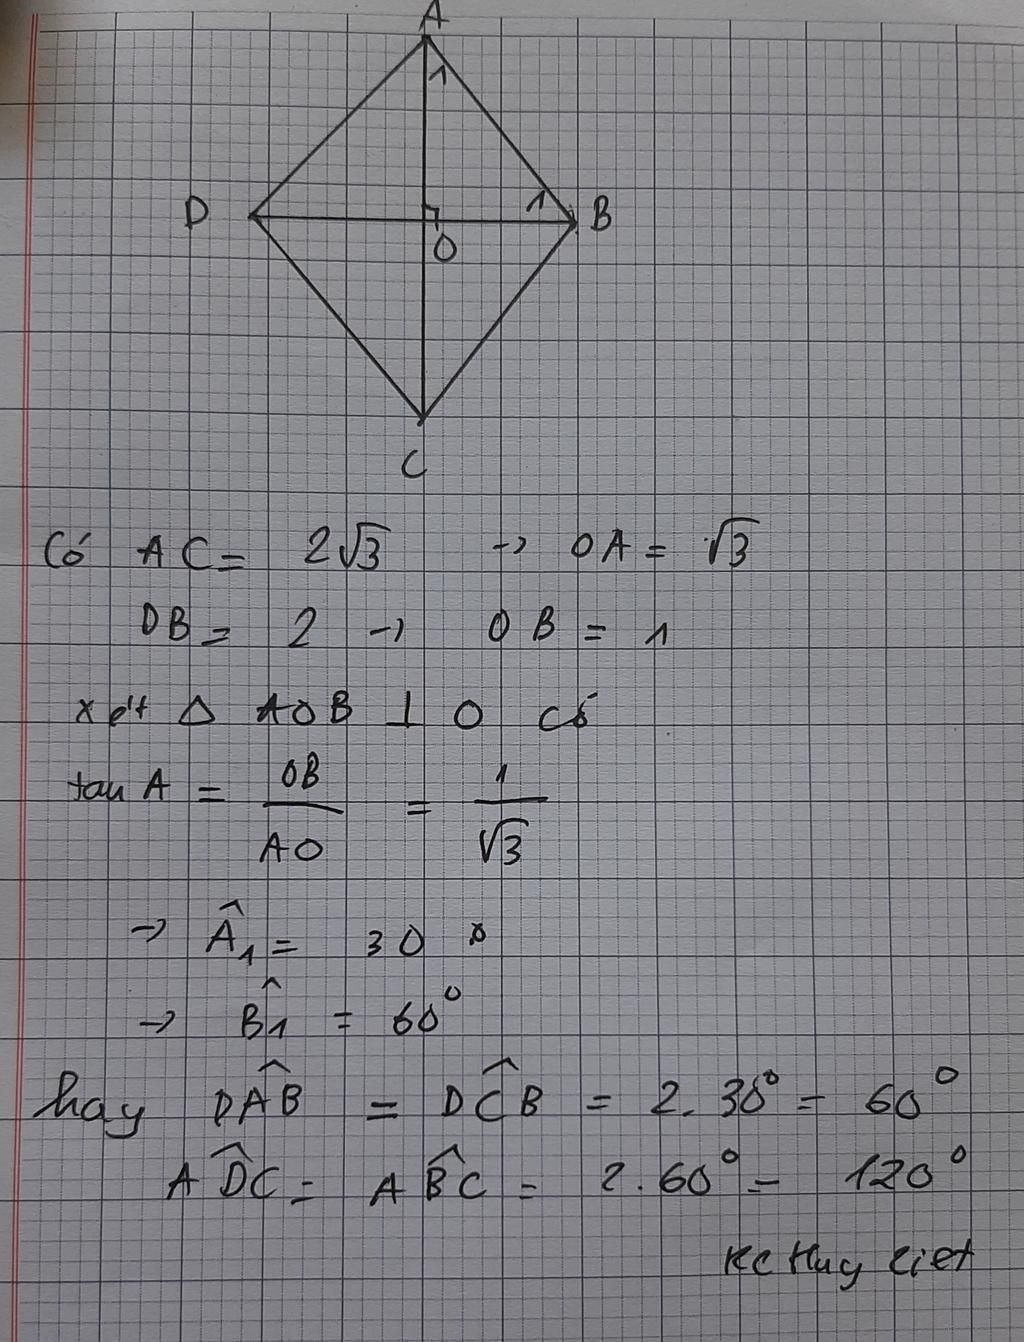 A
1
D
1
B
O
C
Có AC = 2√3 -> OA = √3
DB = 2 -> OB = 1
xét Δ AOB ⊥ O có
tan A = OB/AO = 1/√3
-> Â1 = 30°
-> B̂1 = 60°
hay DÂB = DĈB = 2.30° = 60°
AD̂C = AB̂C = 2.60° = 120°